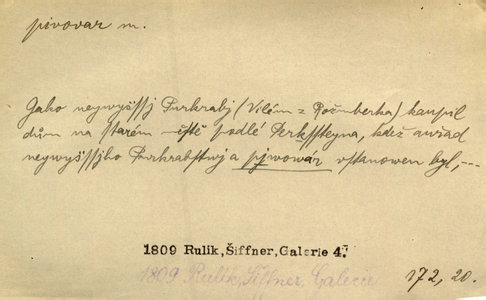 pivovar m.
Gako neywyšssj Purkrabj (Vilém z Rožmberka) kaupil
dům na starém městě podlé Perkssteyna, kdež auřad
neywyšssjho Purkrabstwj a pjwowár vstanowen byl, —
1809 Rulík, Šiffner, Galerie 4.
1809 Rulík, Šiffner, Galerie
172, 20.